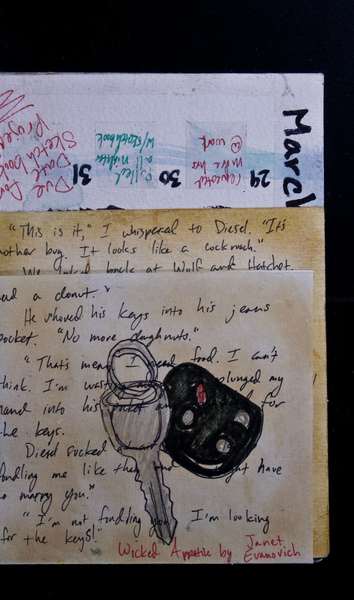 March
29
requested
more hrs
@ work
30
Pulled
all nighter
w/sketchbook
31
Due
Date
Sketchbook
Project
"This is it," I whispered to Diesel. "It's
nother bug. It looks like a cockroach."
We looked back at Wolf and Hatchet.
a donut."
He shoved his keys into his jeans
pocket. "No more doughnuts."
"That's mean. I need food. I can't
think. I'm plunged my
hand into his pocket and for
the keys.
Diesel sucked
fondling me like and have
o marry you."
"I'm not fondling you. I'm looking
for the keys!"
Wicked Appetite by Janet
Evanovich